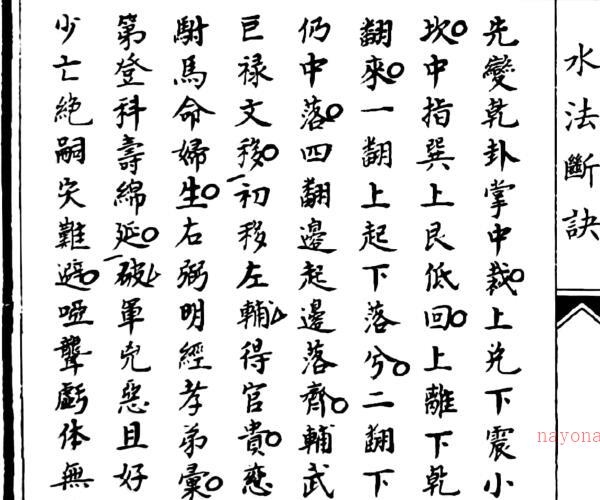 水法斷訣
先變乾卦掌中裁上兌下震小
坎中指巽上艮低回上離下乾
翻來一翻上起下落兮二翻下
仍中落四翻邊起邊落齊輔武
巨祿文移初移左輔得官貴戀
駙馬命婦生右弼明經孝弟彙
第登科壽綿延破軍兇惡且好
少亡絕嗣災難避啞聾虧体無
nayona